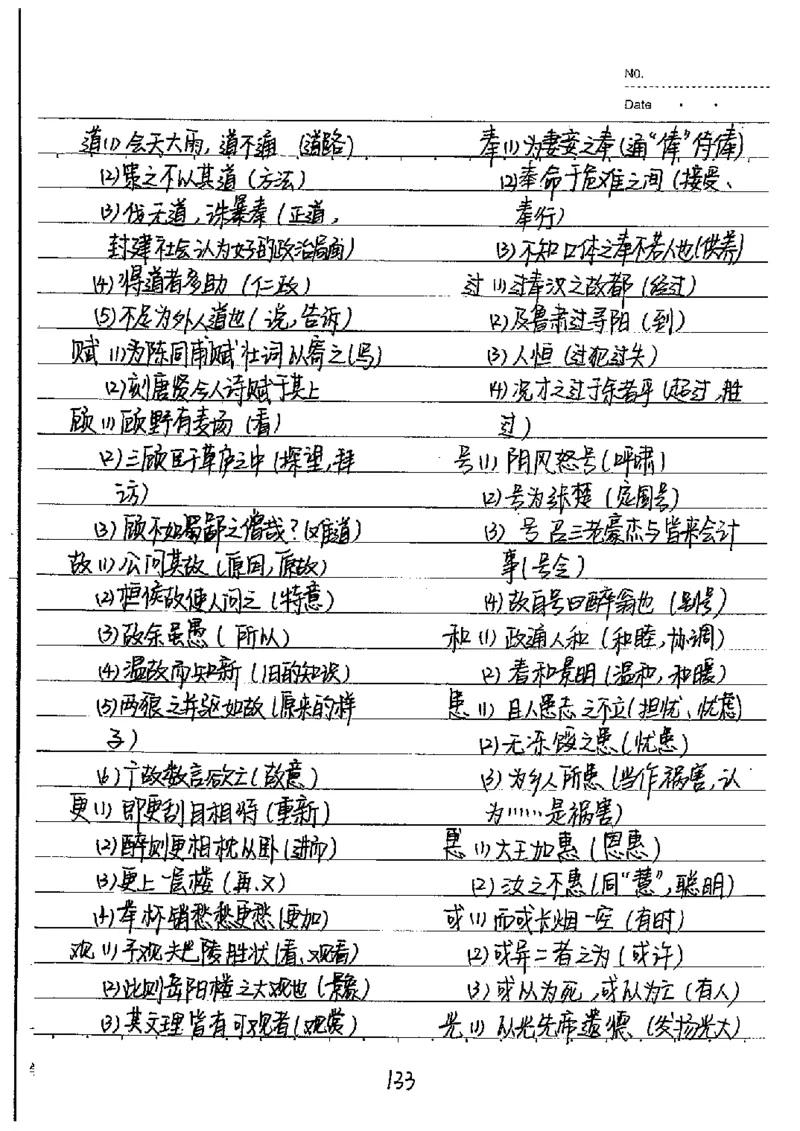 NO.
Date
道(1)会天大雨,道不通(道路)
(2)策之不以其道(方法)
(3)伐无道,诛暴秦(正道,
封建社会认为好的政治局面)
(4)得道者多助(仁政)
(5)不足为外人道也(说,告诉)
赋(1)为陈同甫赋壮词以寄之(写)
(2)刻唐贤今人诗赋于其上
顾(1)顾野有麦场(看)
(2)三顾臣于草庐之中(探望,拜
访)
(3)顾不如蜀鄙之僧哉?(难道)
故(1)公问其故(原因,原故)
(2)桓侯故使人问之(特意)
(3)故余虽愚(所以)
(4)温故而知新(旧的知识)
(5)两狼之并驱如故(原来的样
子)
(6)广故数言欲亡(故意)
更(1)即更刮目相待(重新)
(2)醉则更相枕以卧(进而)
(3)更上一层楼(再、又)
(4)举杯销愁愁更愁(更加)
观(1)予观夫巴陵胜状(看、观看)
(2)此则岳阳楼之大观也(景象)
(3)其文理皆有可观者(观赏)
奉(1)为妻妾之奉(通“俸”侍俸)
(2)奉命于危难之间(接受、
奉行)
(3)不知口体之奉不若人也(供养)
过(1)过秦汉之故都(经过)
(2)及鲁肃过寻阳(到)
(3)人恒(过犯过失)
(4)况才之过于余者乎(超过,胜
过)
号(1)阴风怒号(呼啸)
(2)号为张楚(定国号)
(3)号召三老豪杰与皆来会计
事(号令)
(4)故自号曰醉翁也(别号)
和(1)政通人和(和睦,协调)
(2)春和景明(温和,和暖)
患(1)且人患志之不立(担忧、忧虑)
(2)无冻馁之患(忧患)
(3)为乡人所患(当作祸害,认
为……是祸害)
惠(1)大王加惠(恩惠)
(2)汝之不惠(同“慧”,聪明)
或(1)而或长烟一空(有时)
(2)或异二者之为(或许)
(3)或以为死,或以为亡(有人)
光(1)以光先帝遗德(发扬光大)
133